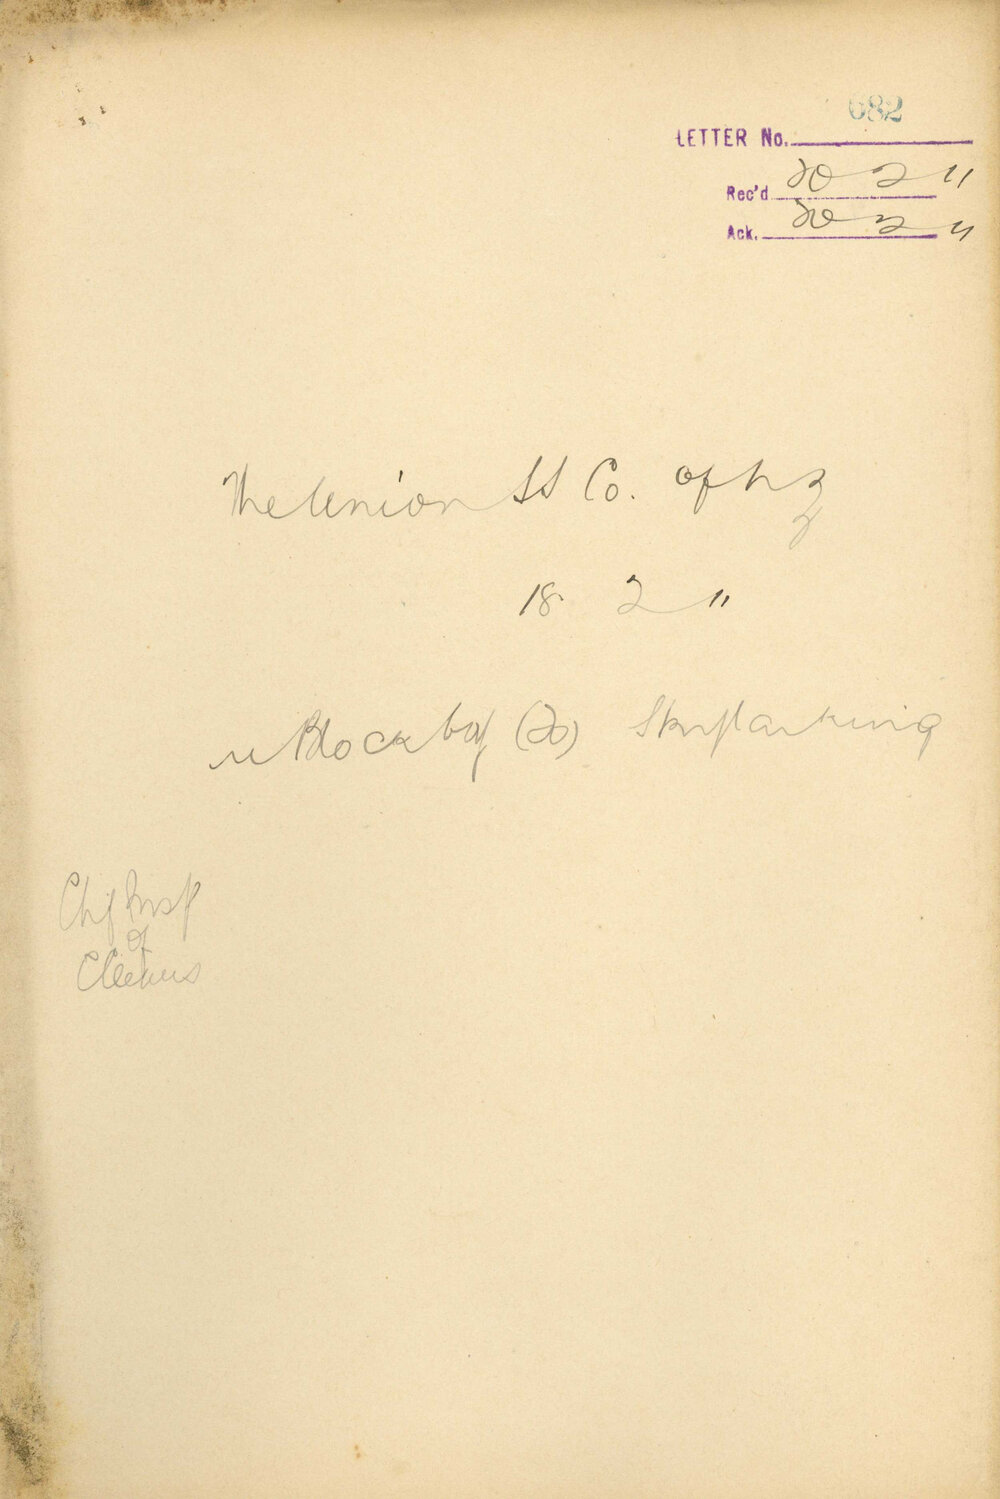 682
LETTER No.
Rec'd 20 2 11
Ack. 20 2 11
The Union SS Co. of N Z
18 2 11
re Block boy (20) Skylarking
Chf Insp
of